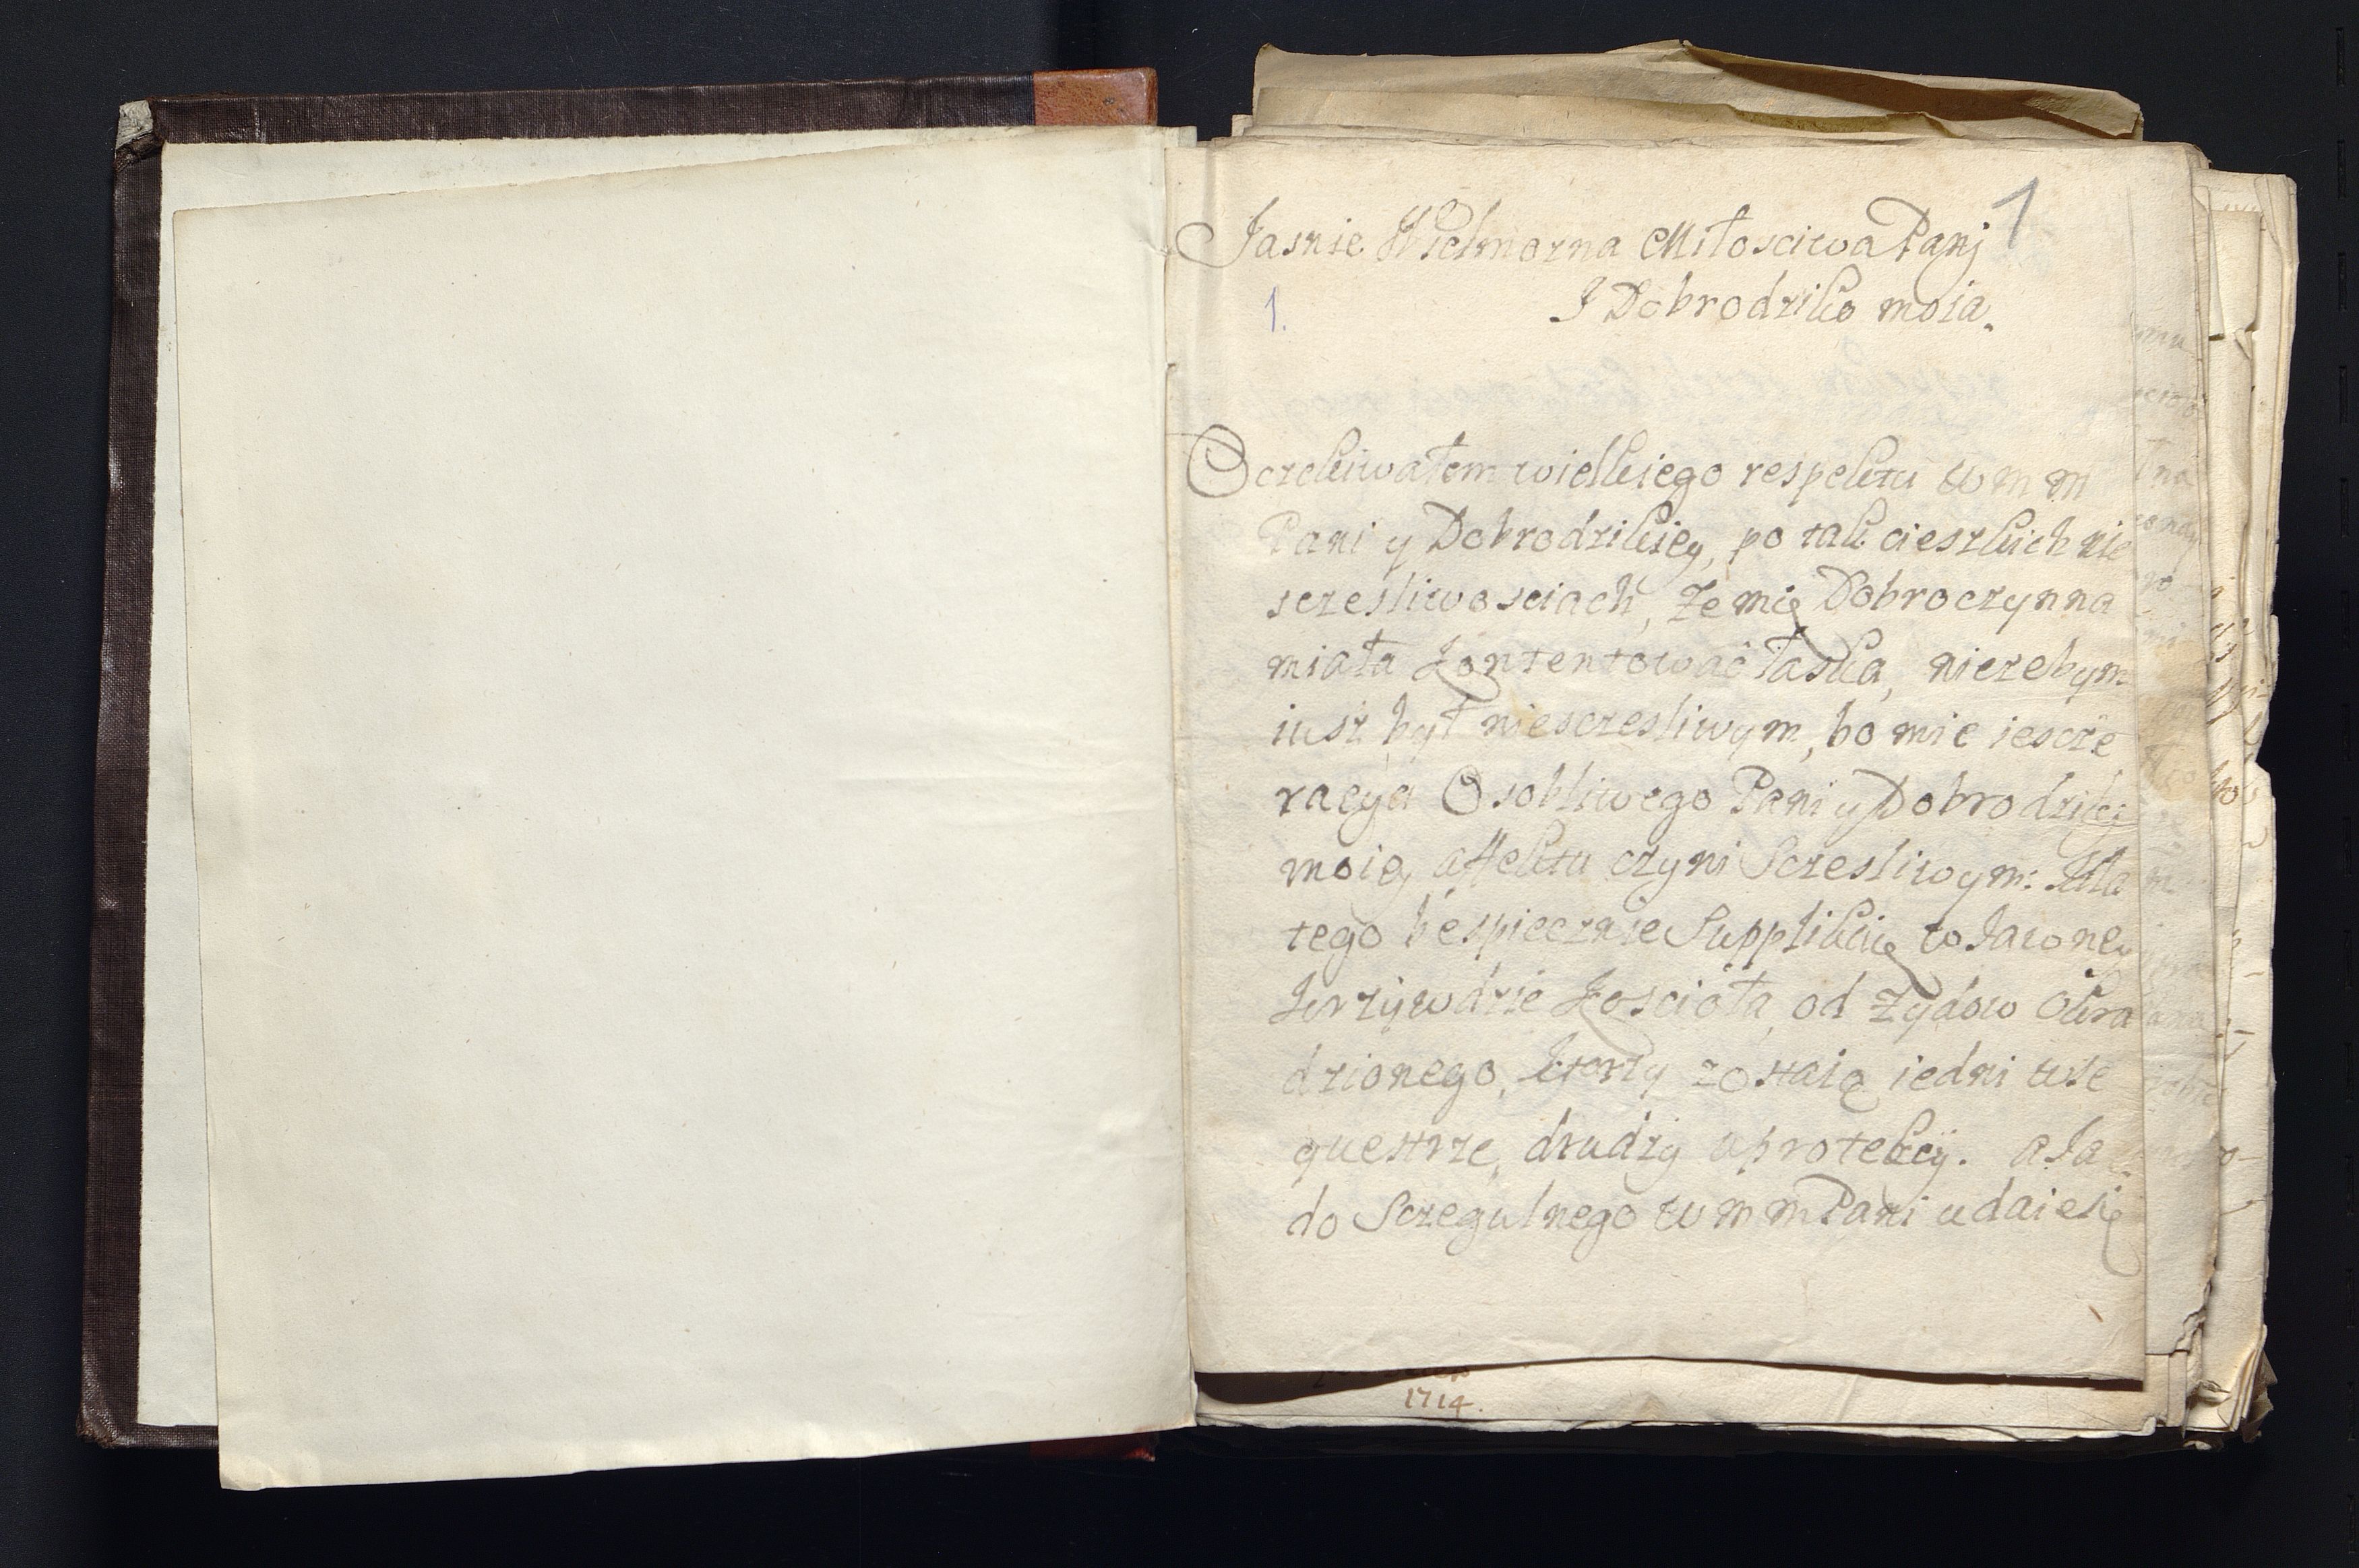 1
Jasnie Wielmozna Miłosciwa Panj
1.
J Dobrodziko moia.
Oczekiwałem wielkiego respektu w m m
Pani y Dobrodzikiey, po tak cieszkich nie
sczesliwosciach, że mię Dobroczynna
miała kontentowac łaska, nie zebym
iusz był niesczesliwym, bo mie iescze
racyja Osobliwego Pani y Dobrodziki
moiey affektu czyni Sczesliwym: Dla
tego bespiecznie Supplikuię w Jawney
krzywdzie kosciola, od Zydow Okra
dzionego, ktorzy zostaią iedni w se
questrze, drudzy w protekcij. a Ja
do Sczegulnego w m m Pani udaie się
1714.